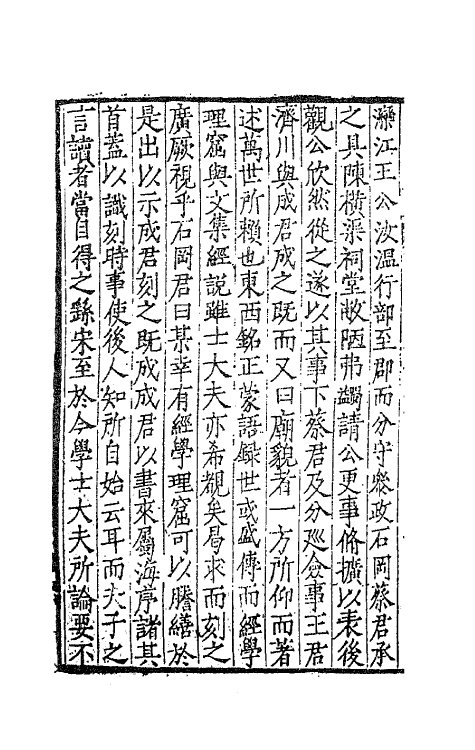 濼江王公汝溫行部至郡而分守參政石岡蔡君承
之具陳橫渠祠堂敝陋弗蠲請公更事脩擴以表後
觀公欣然從之遂以其事下蔡君及分廵僉事王君
濟川與成君成之既而又曰廟貌者一方所仰而著
述萬世所賴也東西銘正蒙語録世或盛傳而經學
理窟與文集經說雖士大夫亦希覩矣曷求而刻之
廣厥視乎石岡君曰某幸有經學理窟可以謄繕於
是出以示成君刻之既成成君以書來屬海序諸其
首蓋以識刻時事使後人知所自始云耳而夫子之
言讀者當自得之繇宋至於今學士大夫所論要不